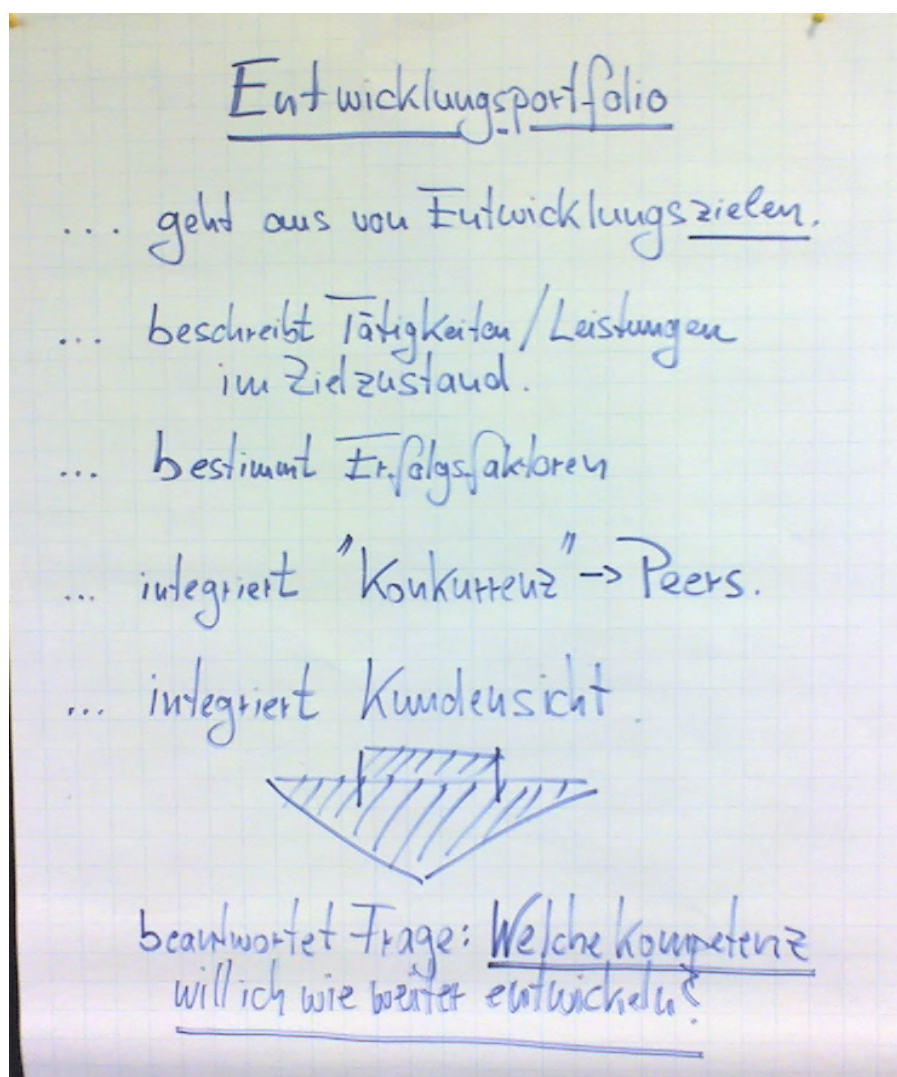 Entwicklungsportfolio
... geht aus von Entwicklungszielen.
... beschreibt Tätigkeiten/Leistungen
im Zielzustand.
... bestimmt Erfolgsfaktoren
... integriert "Konkurrenz" -> Peers.
... integriert Kundensicht
beantwortet Frage: Welche Kompetenz
will ich wie weiter entwickeln?